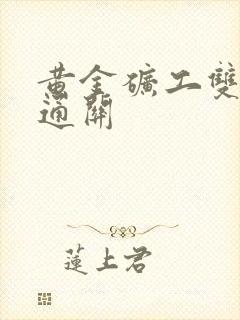 黃金礦工雙
通關
蓮上君